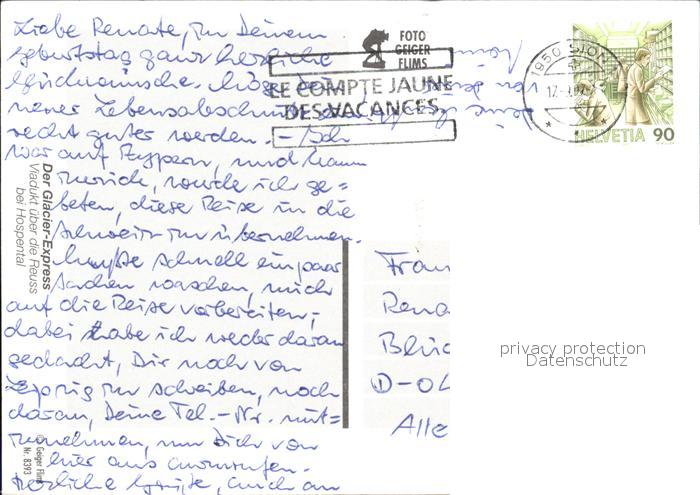 Liebe Renate, zu Deinem
Geburtstag ganz herzliche
Glückwünsche. Möge Dein
neuer Lebensabschnitt
recht guter werden. – Ich
war auf Zypern, und kaum
zurück, wurde ich ge=
beten, diese Reise in die
Schweiz zu übernehmen.
Mußte schnell ein paar
Sachen waschen, mich
auf die Reise vorbereiten;
dabei habe ich weder daran
gedacht, Dir noch von
Leipzig zu schreiben, noch
daran, Deine Tel.-Nr. mit-
zunehmen, um Dich von
hier aus anzurufen.
Herzliche Grüße, auch an
von
Der Glacier-Express
Viadukt über die Reuss
bei Hospental
Geiger Flims
Nr. 8393
FOTO
GEIGER
FLIMS
LE COMPTE JAUNE
DES VACANCES
1950 SION
HELVETIA 90
Frau
Rena
D-04
Alle
privacy protection
Datenschutz